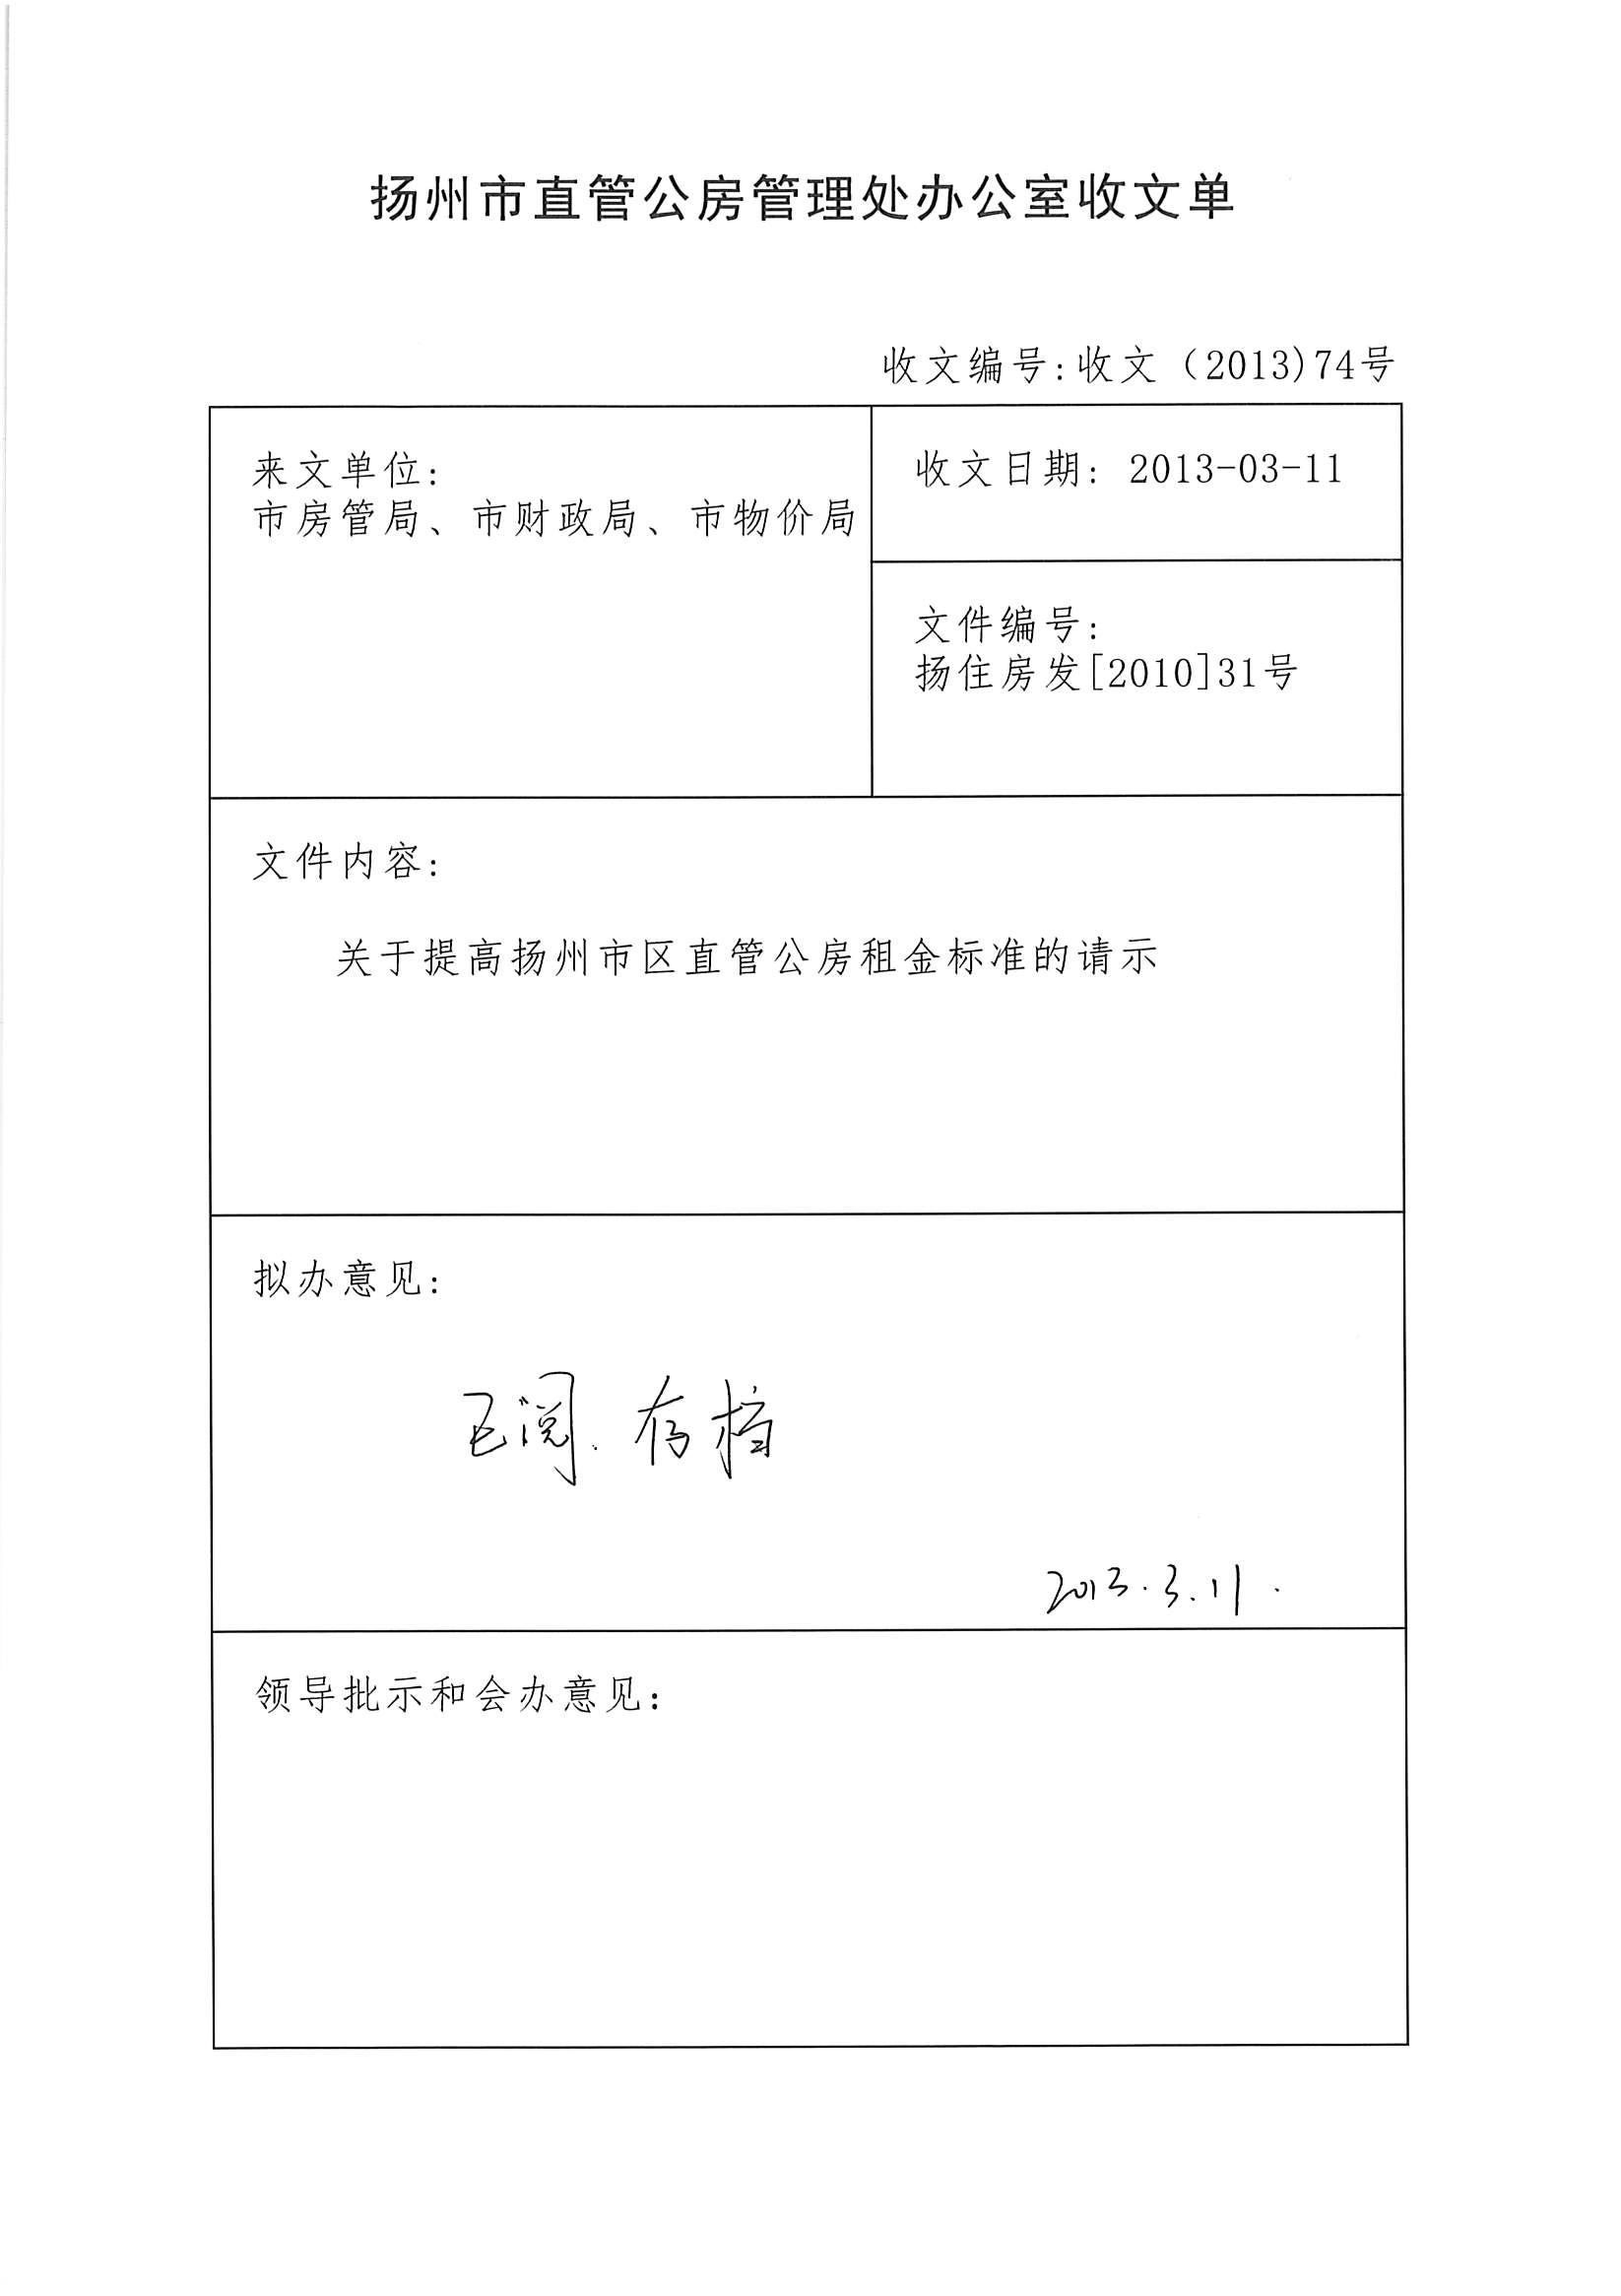 扬州市直管公房管理处办公室收文单
收文编号:收文（2013)74号
来文单位:
市房管局、市财政局、市物价局
收文日期: 2013-03-11
文件编号:
扬住房发[2010]31号
文件内容:
关于提高扬州市区直管公房租金标准的请示
拟办意见:
已阅.存档
2013.3.11.
领导批示和会办意见: